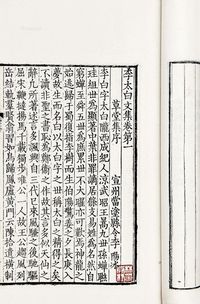 李太白文集卷第一
草堂集序
宣州當塗縣令李陽冰
李白字太白隴西成紀人涼武昭王暠九世孫蟬聯
珪組世為顯著中葉非罪謫居條支易姓為名然自
窮蟬至舜五世為庶累世不大曜亦可歎焉神龍之
始逃歸于蜀復指李樹而生伯陽驚姜之夕長庚入
夢故生而名白以太白字之世稱太白之精得之矣
不讀非聖之書恥為鄭衛之作故其言多似天仙之
辭凡所著述言多諷興自三代已來風騷之後馳驅
屈宋鞭撻揚馬千載獨步唯公一人故王公趨風列
岳結軌群賢翕習如鳥歸鳳盧黃門云陳拾遺橫制